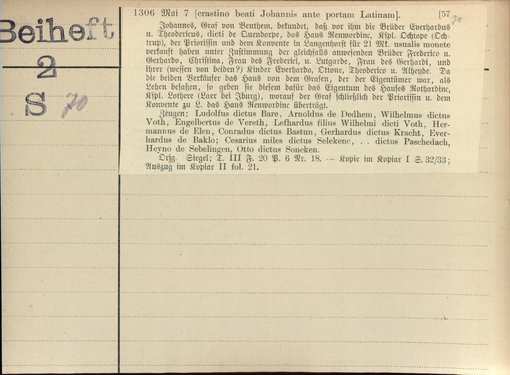 Beiheft
2
S 70
1306 Mai 7 [crastino beati Johannis ante portam Latinam]. [57
Johannes, Graf von Benthem, bekundet, daß vor ihm die Brüder Everhardus
u. Theodericus, dicti de Owendorpe, das Haus Renwordinc, Kspl. Ochtope (Och-
trup), der Priorissin und dem Konvente in Langenhorst für 21 Mk. usualis monete
verkauft haben unter Zustimmung der gleichfalls anwesenden Brüder Frederico u.
Gerhardo, Christina, Frau des Frederici, u. Lutgarde, Frau des Gerhardi, und
ihrer (wessen von beiden?) Kinder Everhardo, Ottone, Theoderico u. Alheyde. Da
die beiden Verkäufer das Haus von dem Grafen, der der Eigentümer war, als
Lehen besaßen, so geben sie diesem dafür das Eigentum des Hauses Rothardinc,
Kspl. Lothere (Laer bei Iburg), worauf der Graf schließlich der Priorissin u. dem
Konvente zu L. das Haus Renwordinc überträgt.
Zeugen: Ludolfus dictus Bare, Arnoldus de Dedhem, Wilhelmus dictus
Voth, Engelbertus de Vereth, Lefhardus filius Wilhelmi dicti Voth, Her-
mannus de Elen, Conradus dictus Bastun, Gerhardus dictus Kracht, Ever-
hardus de Baklo; Cesarius miles dictus Selekenc, . . dictus Paschedach,
Heyno de Sebelingen, Otto dictus Soneken.
Orig. Siegel; T. III F. 20 P. 6 Nr. 18. — Kopie im Kopiar I S. 32/33;
Auszug im Kopiar II fol. 21.